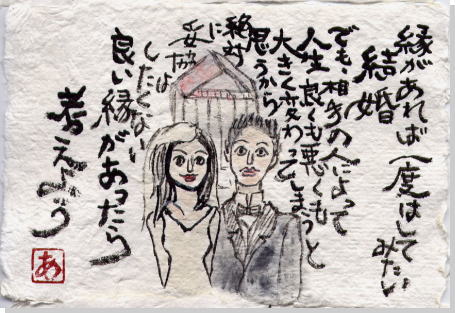 縁があれば一度はしてみたい
結婚
でも、相手の人によって
人生良くも悪くも
大きく変わってしまうと
思うから
絶対
に
妥協は
したくない
良い縁があったら
考えよう
あ